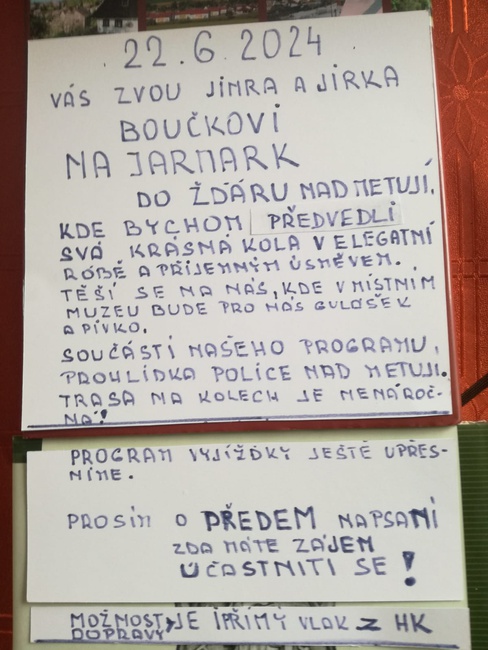 22.6.2024
VÁS ZVOU JIMRA A JIRKA
BOUČKOVI
NA JARMARK
DO ŽĎÁRU NAD METUJÍ,
KDE BYCHOM PŘEDVEDLI
SVÁ KRÁSNÁ KOLA V ELEGATNÍ
RÓBĚ A PŘÍJEMNÝM ÚSMĚVEM.
TĚŠÍ SE NA NÁS, KDE V MÍSTNÍM
MUZEU BUDE PRO NÁS GULÁŠEK
A PÍVKO.
SOUČÁSTÍ NAŠEHO PROGRAMU,
PROHLÍDKA POLICE NAD METUJI.
TRASA NA KOLECH JE NENÁROČ-
NÁ!
PROGRAM VYJÍŽĎKY JEŠTĚ UPŘES-
NÍME.
PROSÍM O PŘEDEM NAPSANÍ
ZDA MÁTE ZÁJEM
ÚČASTNITI SE!
MOŽNOST JE I PŘÍMÝ VLAK Z HK
DOPRAVY